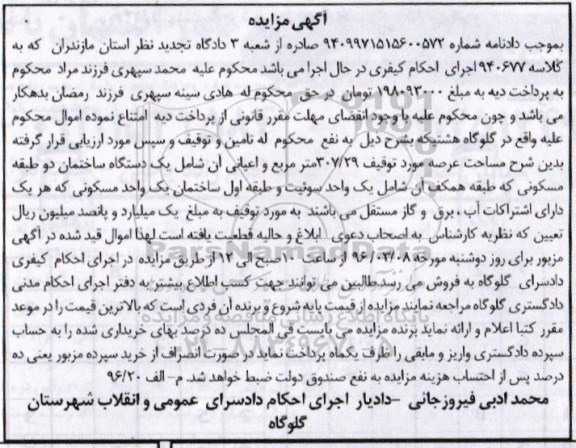 آگهی مزایده
بموجب دادنامه شماره ۹۴۰۹۹۷۱۵۱۵۶۰۰۵۷۲ صادره از شعبه ۳ دادگاه تجدید نظر استان مازندران که به
کلاسه ۹۴۰۶۷۷ اجرای احکام کیفری در حال اجرا می باشد محکوم علیه محمد سپهری فرزند مراد محکوم
به پرداخت دیه به مبلغ ۱۹۸۰۹۳۰۰۰ تومان در حق محکوم له هادی سینه سپهری فرزند رمضان بدهکار
می باشد و چون محکوم علیه با وجود انقضای مهلت مقرر قانونی از پرداخت دیه امتناع نموده اموال محکوم
علیه واقع در گلوگاه هشتیکه بشرح ذیل به نفع محکوم له تامین و توقیف و سپس مورد ارزیابی قرار گرفته
بدین شرح مساحت عرصه مورد توقیف ۳۰۷/۲۹متر مربع و اعیانی آن شامل یک دستگاه ساختمان دو طبقه
مسکونی که طبقه همکف آن شامل یک واحد سوئیت و طبقه اول ساختمان یک واحد مسکونی که هر یک
دارای اشتراکات آب ، برق و گاز مستقل می باشند به مورد توقیف به مبلغ یک میلیارد و پانصد میلیون ریال
تعیین که نظریه کارشناس به اصحاب دعوی ابلاغ و حالیه قطعیت یافته است لهذا اموال قید شده در آگهی
مزبور برای روز دوشنبه مورخه ۹۶/۰۳/۰۸ از ساعت ۱۰صبح الی ۱۲ از طریق مزایده در اجرای احکام کیفری
دادسرای گلوگاه به فروش می رسد طالبین می توانند جهت کسب اطلاع بیشتر به دفتر اجرای احکام مدنی
دادگستری گلوگاه مراجعه نمایند مزایده از قیمت پایه شروع و برنده آن فردی است که بالاترین قیمت را در موعد
مقرر کتبا اعلام و ارائه نماید برنده مزایده می بایست فی المجلس ده درصد بهای خریداری شده را به حساب
سپرده دادگستری واریز و مابقی را ظرف یکماه پرداخت نماید در صورت انصراف از خرید سپرده مزبور یعنی ده
درصد پس از احتساب هزینه مزایده به نفع صندوق دولت ضبط خواهد شد. م- الف ۹۶/۲۰
محمد ادبی فیروزجائی –دادیار اجرای احکام دادسرای عمومی و انقلاب شهرستان
گلوگاه